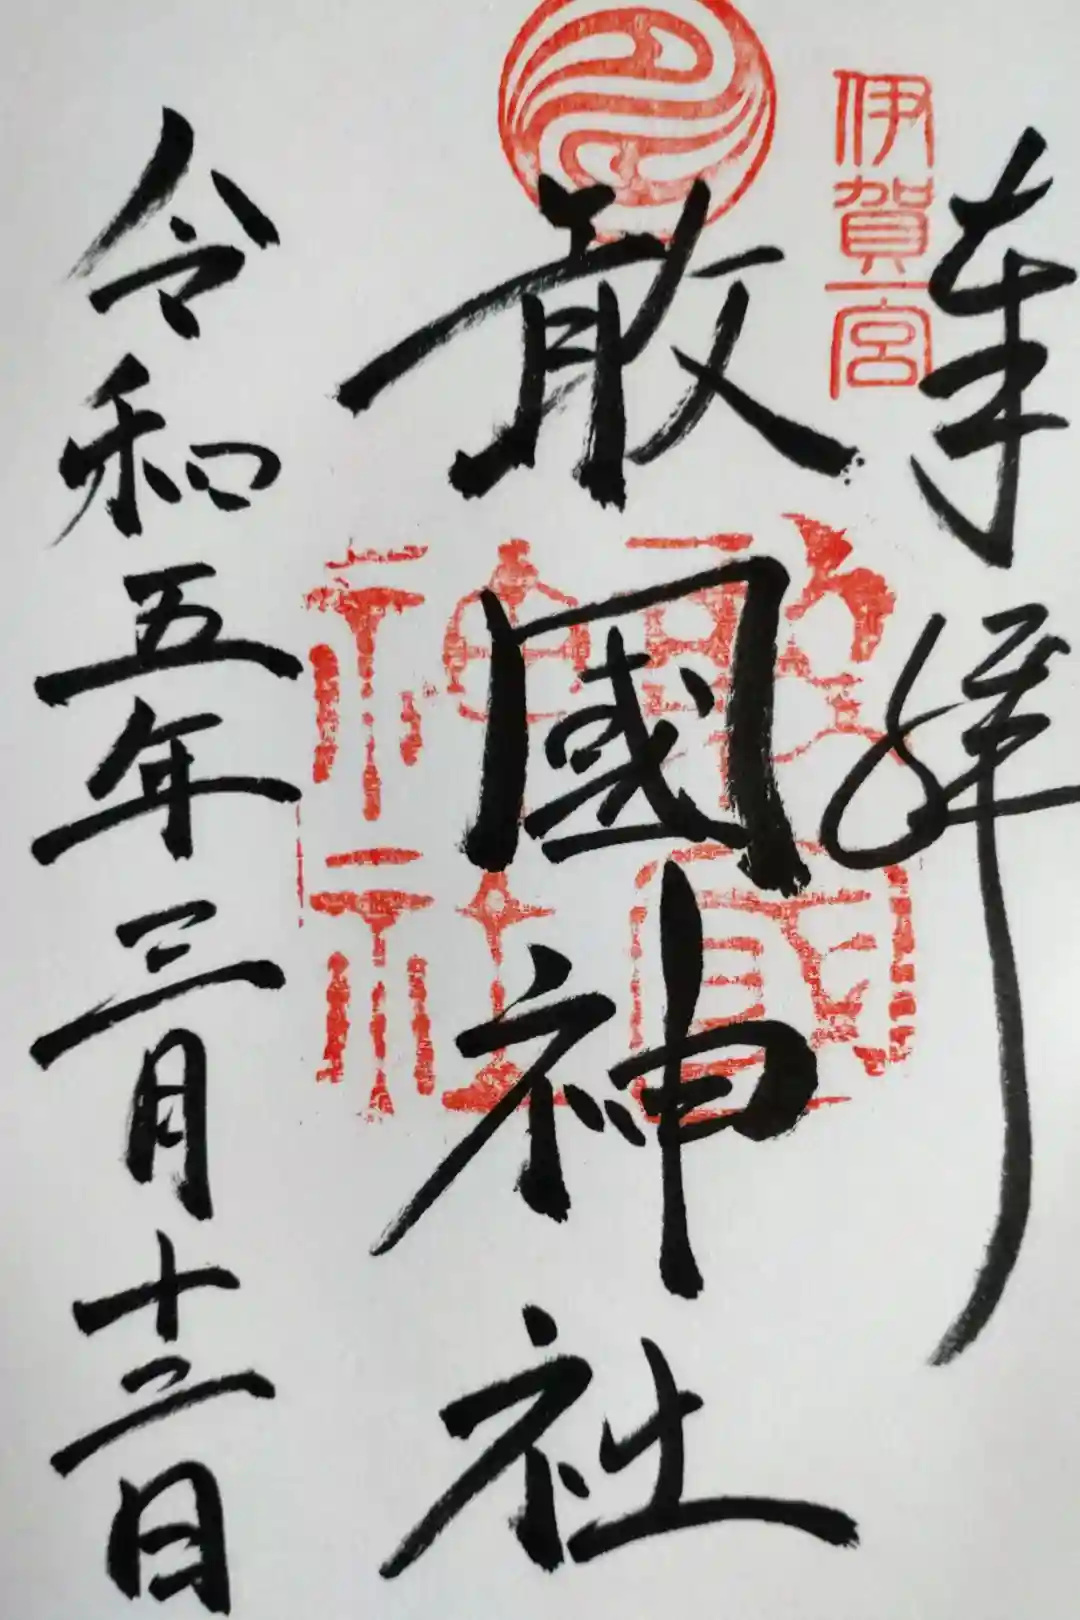 奉拝
伊賀一宮
敢國神社
敢國
神社
令和五年三月十三日